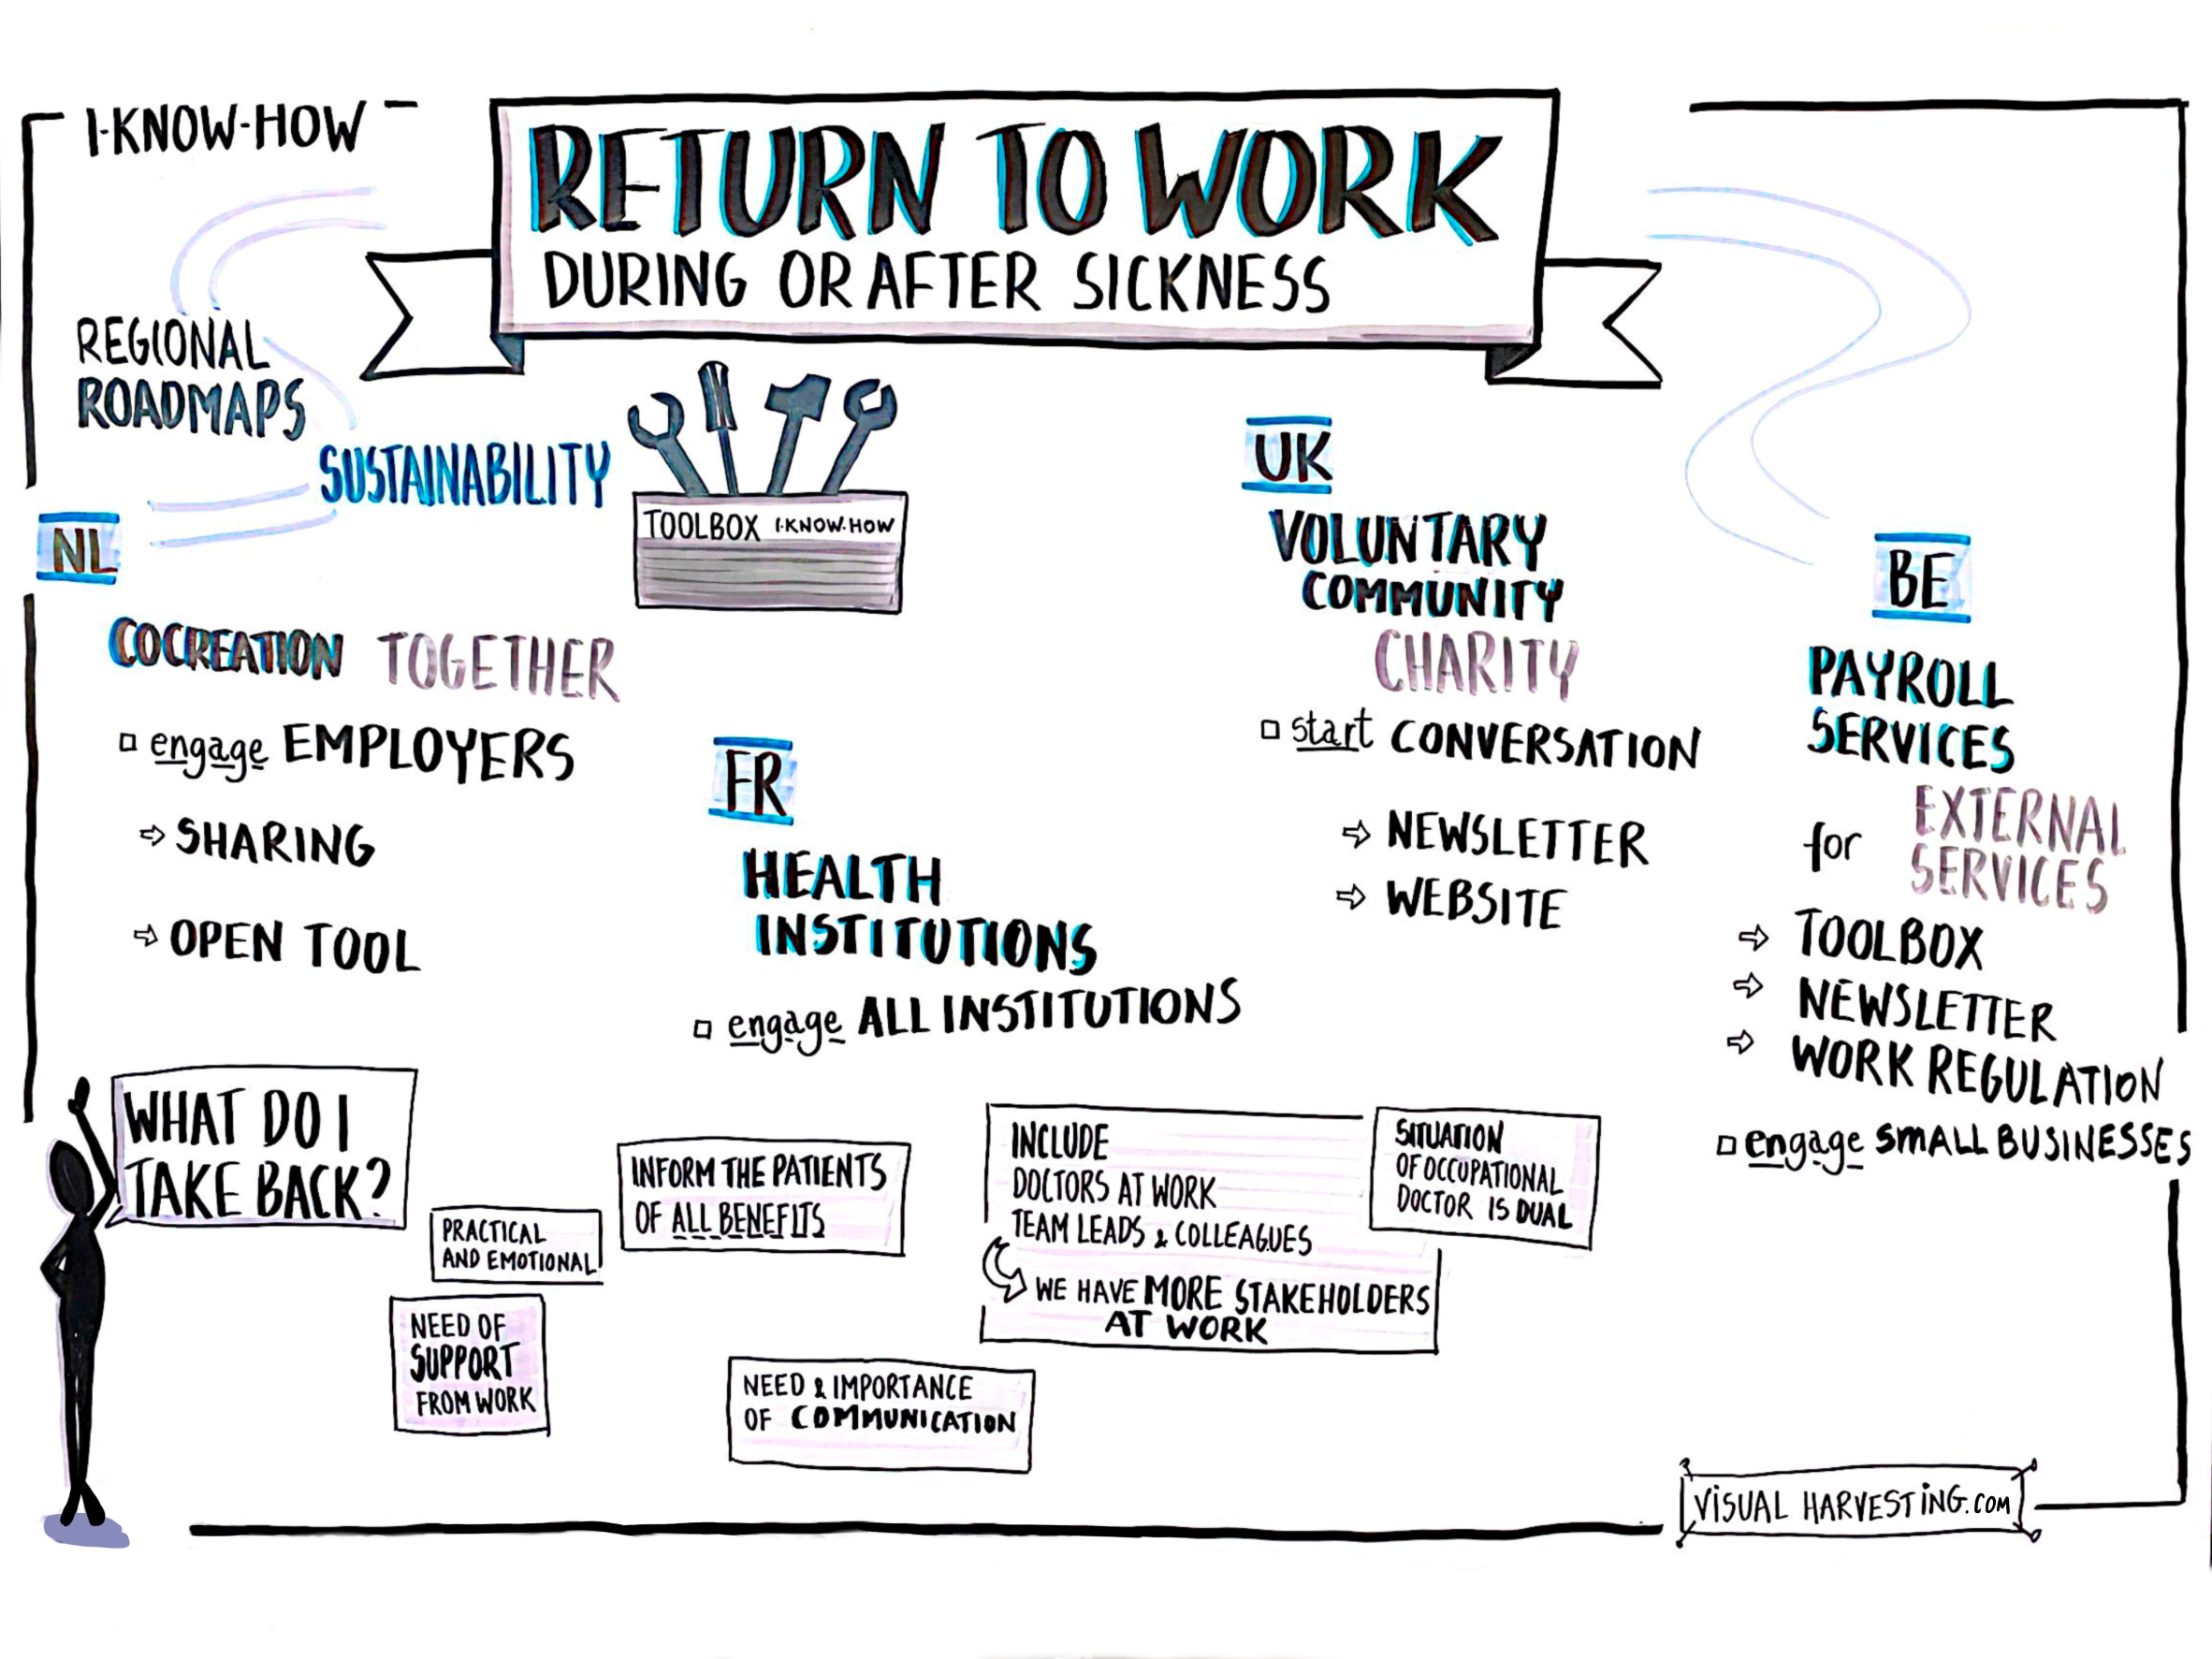 I-KNOW-HOW
RETURN TO WORK
DURING OR AFTER SICKNESS
REGIONAL
ROADMAPS
SUSTAINABILITY
TOOLBOX I-KNOW-HOW
NL
COCREATION TOGETHER
engage EMPLOYERS
⇨ SHARING
⇨ OPEN TOOL
FR
HEALTH
INSTITUTIONS
engage ALL INSTITUTIONS
UK
VOLUNTARY
COMMUNITY
CHARITY
start CONVERSATION
⇨ NEWSLETTER
⇨ WEBSITE
BE
PAYROLL
SERVICES
for EXTERNAL
SERVICES
⇨ TOOLBOX
⇨ NEWSLETTER
⇨ WORK REGULATION
engage SMALL BUSINESSES
WHAT DO I
TAKE BACK?
PRACTICAL
AND EMOTIONAL
NEED OF
SUPPORT
FROM WORK
INFORM THE PATIENTS
OF ALL BENEFITS
NEED & IMPORTANCE
OF COMMUNICATION
INCLUDE
DOCTORS AT WORK
TEAM LEADS & COLLEAGUES
WE HAVE MORE STAKEHOLDERS
AT WORK
SITUATION
OF OCCUPATIONAL
DOCTOR IS DUAL
VISUAL HARVESTING.COM